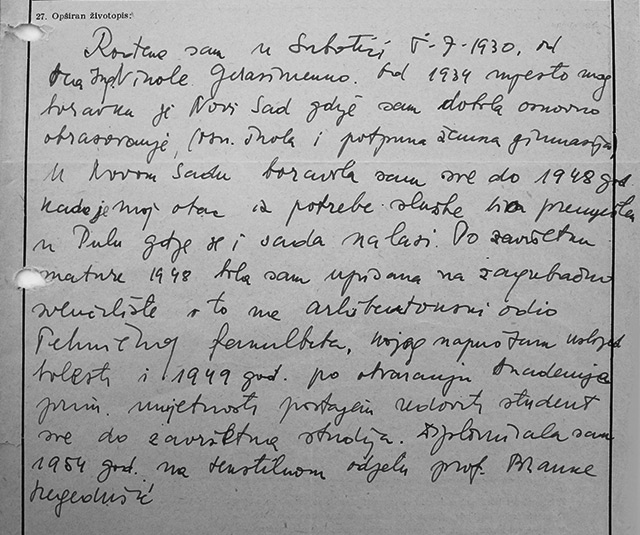 27. Opširan životopis:
Rođena sam u Subotici 5-7-1930, od
i Nikole Gerasimenno. Od 1934 mjesto mog
boravka je Novi Sad gdje sam dobila osnovno
obrazovanje, (osn. škola i potpuna ženska gimnazija)
U Novom Sadu boravila sam sve do 1948 god
kada je moj otac iz potrebe službe bio premješten
u Pulu gdje se i sada nalazi. Po završetku
mature 1948 bila sam upisana na zagrebačko
sveučilište i to na arhitektonski odio
Tehničkog fakulteta, kojeg napuštam uslijed
bolesti i 1949 god. po otvaranju Akademije
prim. umjetnosti postajem redoviti student
sve do završetka studija. Diplomirala sam
1954 god. na tekstilnom odjelu prof. Branke
Hegedušić